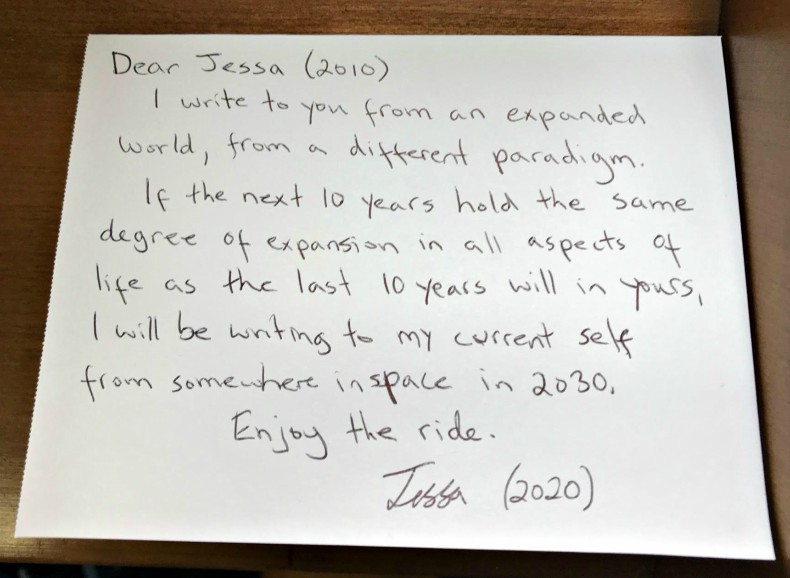 Dear Jessa (2010)
I write to you from an expanded
world, from a different paradigm.
If the next 10 years hold the same
degree of expansion in all aspects of
life as the last 10 years will in yours,
I will be writing to my current self
from somewhere in space in 2030.
Enjoy the ride.
Jessa (2020)